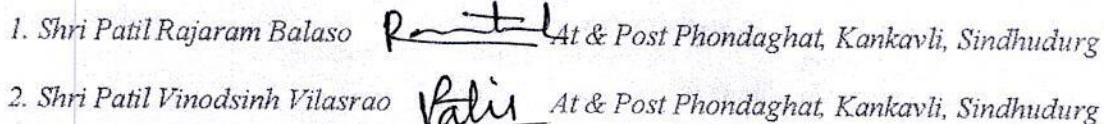 1. Shri Patil Rajaram Balaso At & Post Phondaghat, Kankavli, Sindhudurg
2. Shri Patil Vinodsinh Vilasrao Patil At & Post Phondaghat, Kankavli, Sindhudurg